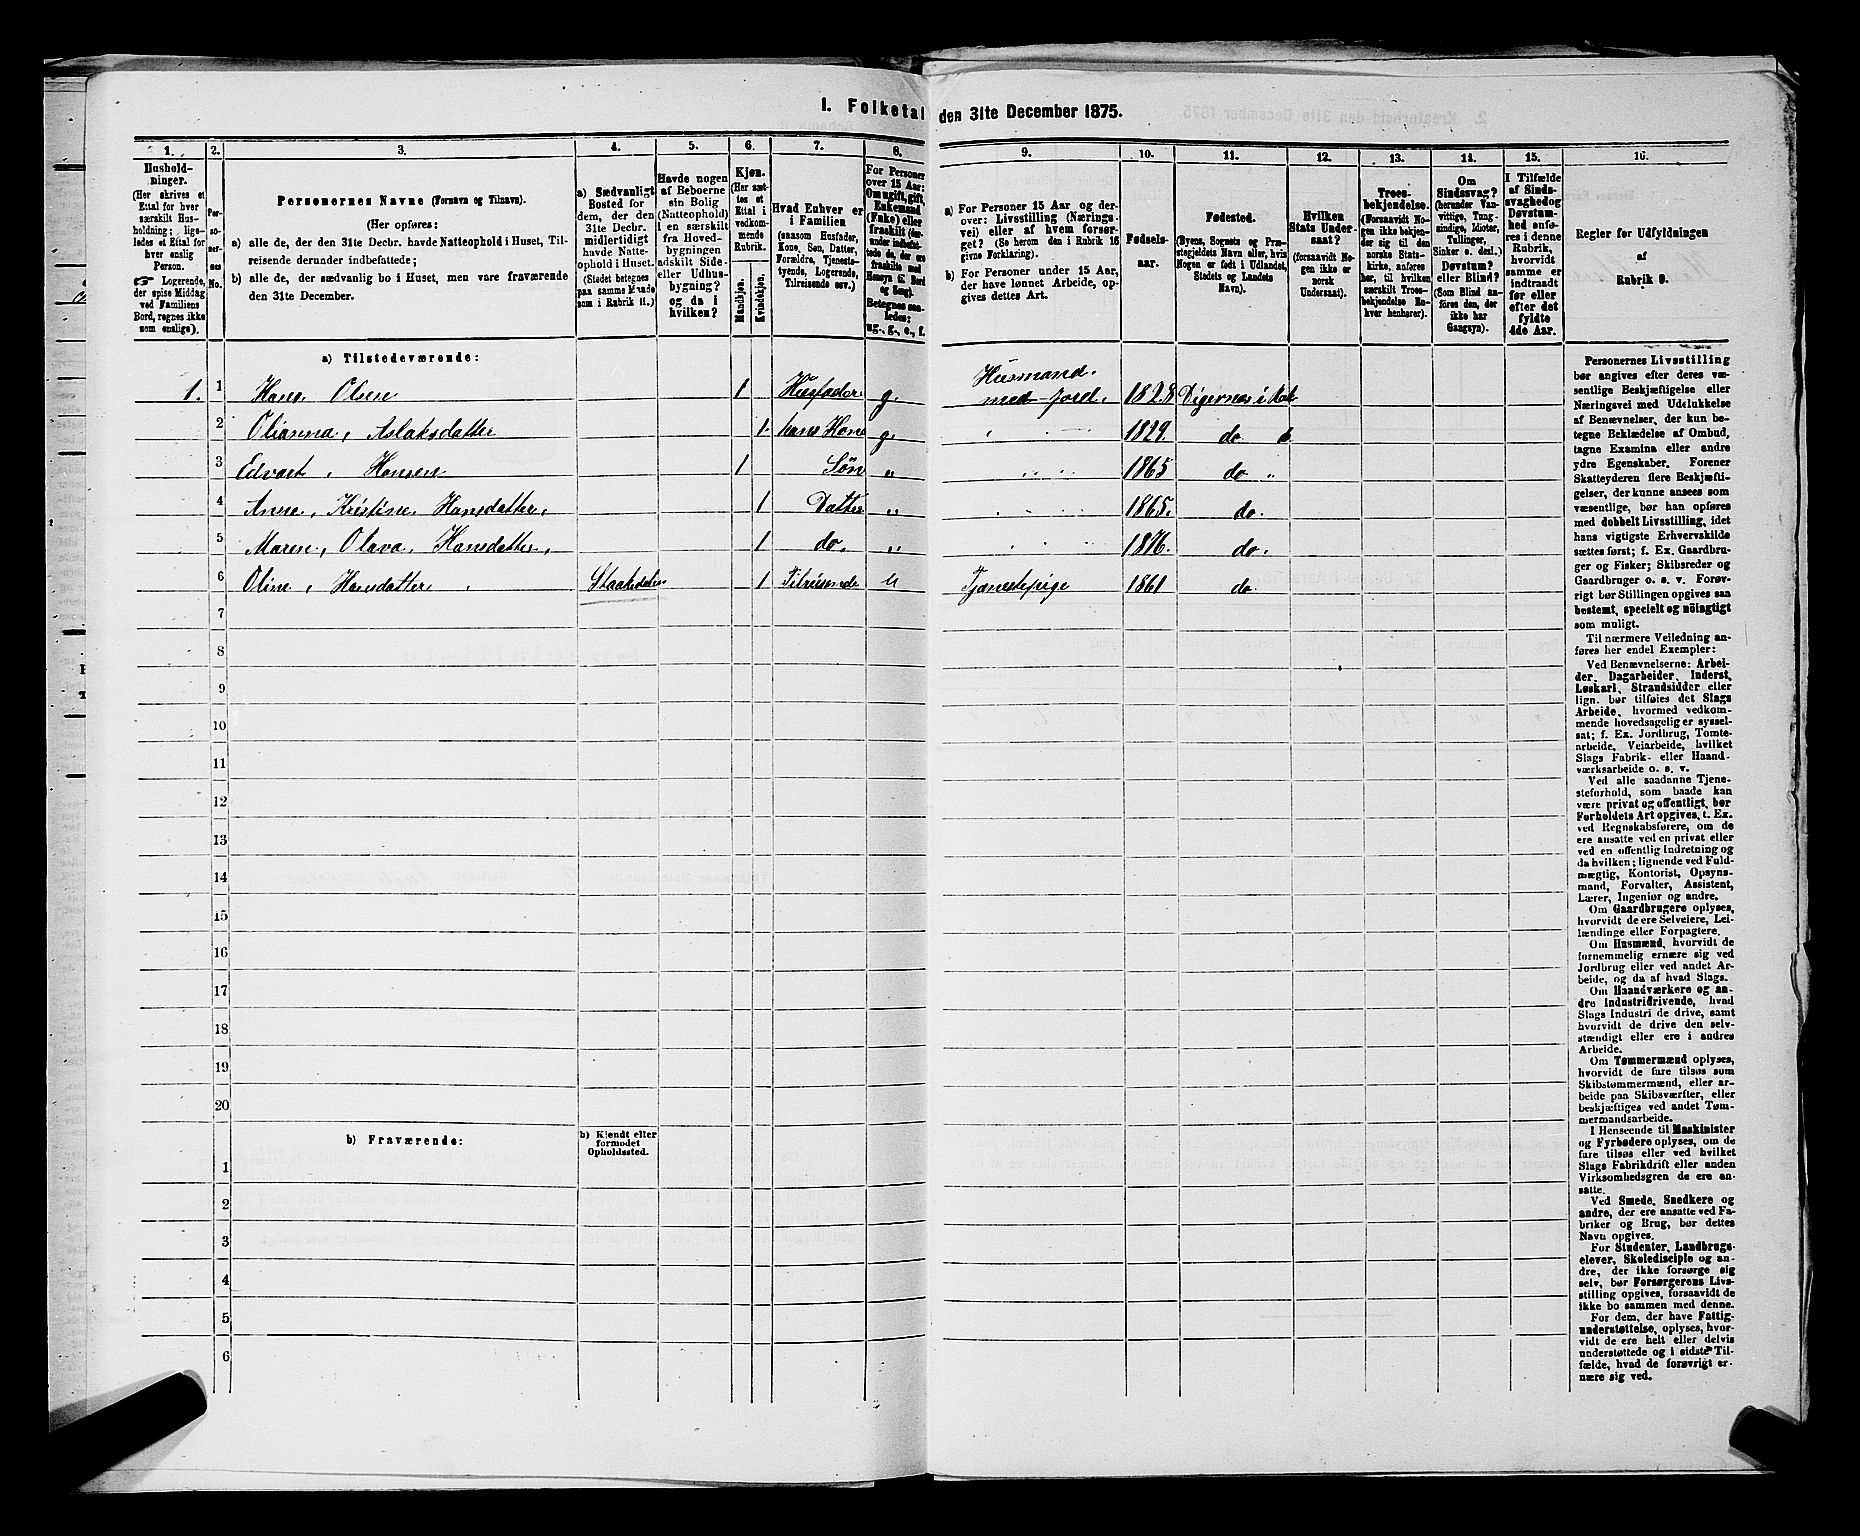 1. Folketal den 31te December 1875.
1. 2. 3. 4. 5. 6. 7. 8. 9. 10. 11. 12. 13. 14. 15. 16.
Hushold-
ninger.
(Her skrives et
Ettal for hver
særskilt Hus-
holdning; lige-
ledes et Ettal for
hver enslig
Person.
☞ Logerende,
der spise Middag
ved Familiens
Bord, regnes ikke
som enslige).
Per-
so-
ner-
nes
No.
Personernes Navne (Fornavn og Tilnavn).
(Her opføres:
a) alle de, der den 31te Decbr. havde Natteophold i Huset, Til-
reisende derunder indbefattede;
b) alle de, der sædvanlig bo i Huset, men vare fraværende
den 31te December.
a) Sædvanligt
Bosted for
dem, der den
31te Decbr.
midlertidigt
havde Natte-
ophold i Huset.
(Stedet betegnes
paa samme Maade
som i Rubrik 11.)
Havde nogen
af Beboerne
sin Bolig
(Natteophold)
i en særskilt
fra Hoved-
bygningen
adskilt Side-
eller Udhus-
bygning?
og da i
hvilken?
Kjøn.
(Her sæt-
tes et
Ettal i
vedkom-
mende
Rubrik.
Mandkjøn.
Kvindekjøn.
Hvad Enhver er
i Familien
(saasom Husfader,
Kone, Søn, Datter,
Forældre, Tjeneste-
tyende, Logerende,
Tilreisende osv.)
For Personer
over 15 Aar:
Om ugift, gift,
Enkemand
(Enke) eller
fraskilt (der-
under indbefat-
tede de, der ere
fraskilte med
Hensyn til Bord
og Seng).
Betegnes saa-
ledes:
ug., g., e., f.
a) For Personer 15 Aar og der-
over: Livsstilling (Nærings-
vei) eller af hvem forsør-
get? (Se herom den i Rubrik 16
givne Forklaring).
b) For Personer under 15 Aar,
der have lønnet Arbeide, op-
gives dettes Art.
Fødsels-
aar.
Fødested.
(Byens, Sognets og Præ-
stegjeldets Navn eller, hvis
Nogen er født i Udlandet,
Stedets og Landets
Navn).
Hvilken
Stats Under-
saat?
(forsaavidt No-
gen ikke er
norsk
Undersaat).
Troes-
bekjendelse.
(Forsaavidt No-
gen ikke bekjen-
der sig til den
norske Stats-
kirke, anføres
her, til hvilken
særskilt Troes-
bekjendelse En-
hver henhører).
Om
Sindssvag?
(herunder Van-
vittige, Tung-
sindige, Idioter,
Tullinger,
Sinker o. desl.)
Døvstum?
eller Blind?
(Som Blind an-
føres den, der
ikke har
Gangsyn).
I Tilfælde
af Sinds-
svaghed og
Døvstum-
hed anfø-
res i denne
Rubrik,
hvorvidt
samme er
indtraadt
før eller
efter det
fyldte
4de Aar.
Regler for Udfyldningen
af
Rubrik 9.
a) Tilstedeværende:
1. 1 Hans Olsen 1 Husfader g. Husmand med Jord. 1828 Digernes i
2 Olianna, Aslaksdatter 1. hans Kone g. 1829. do
3 Edvart, Hansen 1 Søn „ 1865 do „
4 Anne, Kristine Hansdatter, 1 Datter „ 1865. do.
5 Maren, Olava, Hansdatter, 1 do. „ 1876. do.
6 Oline, Hansdatter 1 Tilreisende U Tjenestepige 1861 do.
7
8
9
10
11
12
13
14
15
16
17
18
19
20
b) Fraværende:
b) Kjendt eller
formodet
Opholdssted.
1
2
3
4
5
6
Personernes Livsstilling
bør angives efter deres væ-
sentlige Beskjæftigelse eller
Næringsvei med Udelukkelse
af Benævnelser, der kun be-
tegne Beklædelse af Ombud,
tagne Examina eller andre
ydre Egenskaber. Forener
Skatteyderen flere Beskjæfti-
gelser, der kunne ansees som
væsentlige, bør han opføres
med dobbelt Livsstilling, idet
hans vigtigste Erhvervskilde
sættes først; f. Ex. Gaardbru-
ger og Fisker; Skibsreder og
Gaardbruger o. s. v. Forøv-
rigt bør Stillingen opgives saa
bestemt, specielt og nöiagtigt
som muligt.
Til nærmere Veiledning an-
føres her endel Exempler:
Ved Benævnelserne: Arbei-
der, Dagarbeider, Inderst,
Løskarl, Strandsidder eller
lign. bør tilføies det Slags
Arbeide, hvormed vedkom-
mende hovedsagelig er syssel-
sat; f. Ex. Jordbrug, Tomte-
arbeide, Veiarbeide, hvilket
Slags Fabrik- eller Haand-
værksarbeide o. s. v.
Ved alle saadanne Tjene-
steforhold, som baade kan
være privat og offentligt, bør
Forholdets Art opgives, t. Ex.
ved Regnskabsførere, om de
ere ansatte ved en privat eller
ved en offentlig Indretning og
da hvilken; lignende ved Fuld-
mægtig, Kontorist, Opsyns-
mand, Forvalter, Assistent,
Lærer, Ingeniør og andre.
Om Gaardbrugere oplyses,
hvorvidt de ere Selveiere, Lei-
lændinge eller Forpagtere.
Om Husmænd, hvorvidt de
fornemmelig ernære sig ved
Jordbrug eller ved andet Ar-
beide, og da af hvad Slags.
Om Haandværkere og an-
dre Industridrivende, hvad
Slags Industri de drive, samt
hvorvidt de drive den selv-
stændigt eller ere i andres
Arbeide.
Om Tømmermænd oplyses,
hvorvidt de fare tilsøs som
Skibstømmermænd, eller ar-
beide paa Skibsværfter, eller
beskjæftiges ved andet Tøm-
mermandsarbeide.
I Henseende til Maskinister
og Fyrbødere oplyses, om de
fare tilsøs eller ved hvilket
Slags Fabrikdrift eller anden
Virksomhedsgren de ere an-
satte.
Ved Smede, Snedkere og
andre, der ere ansatte ved Fa-
briker og Brug, bør dettes
Navn opgives.
For Studenter, Landbrugs-
elever, Skoledisciple og an-
dre, der ikke forsørge sig
selv, bør Forsørgerens Livs-
stilling opgives, forsaavidt de
ikke bo sammen med denne.
For dem, der have Fattig-
understøttelse, oplyses, hvor-
vidt de ere helt eller delvis
understøttede og i sidste Til-
fælde, hvad de forøvrigt er-
nære sig ved.